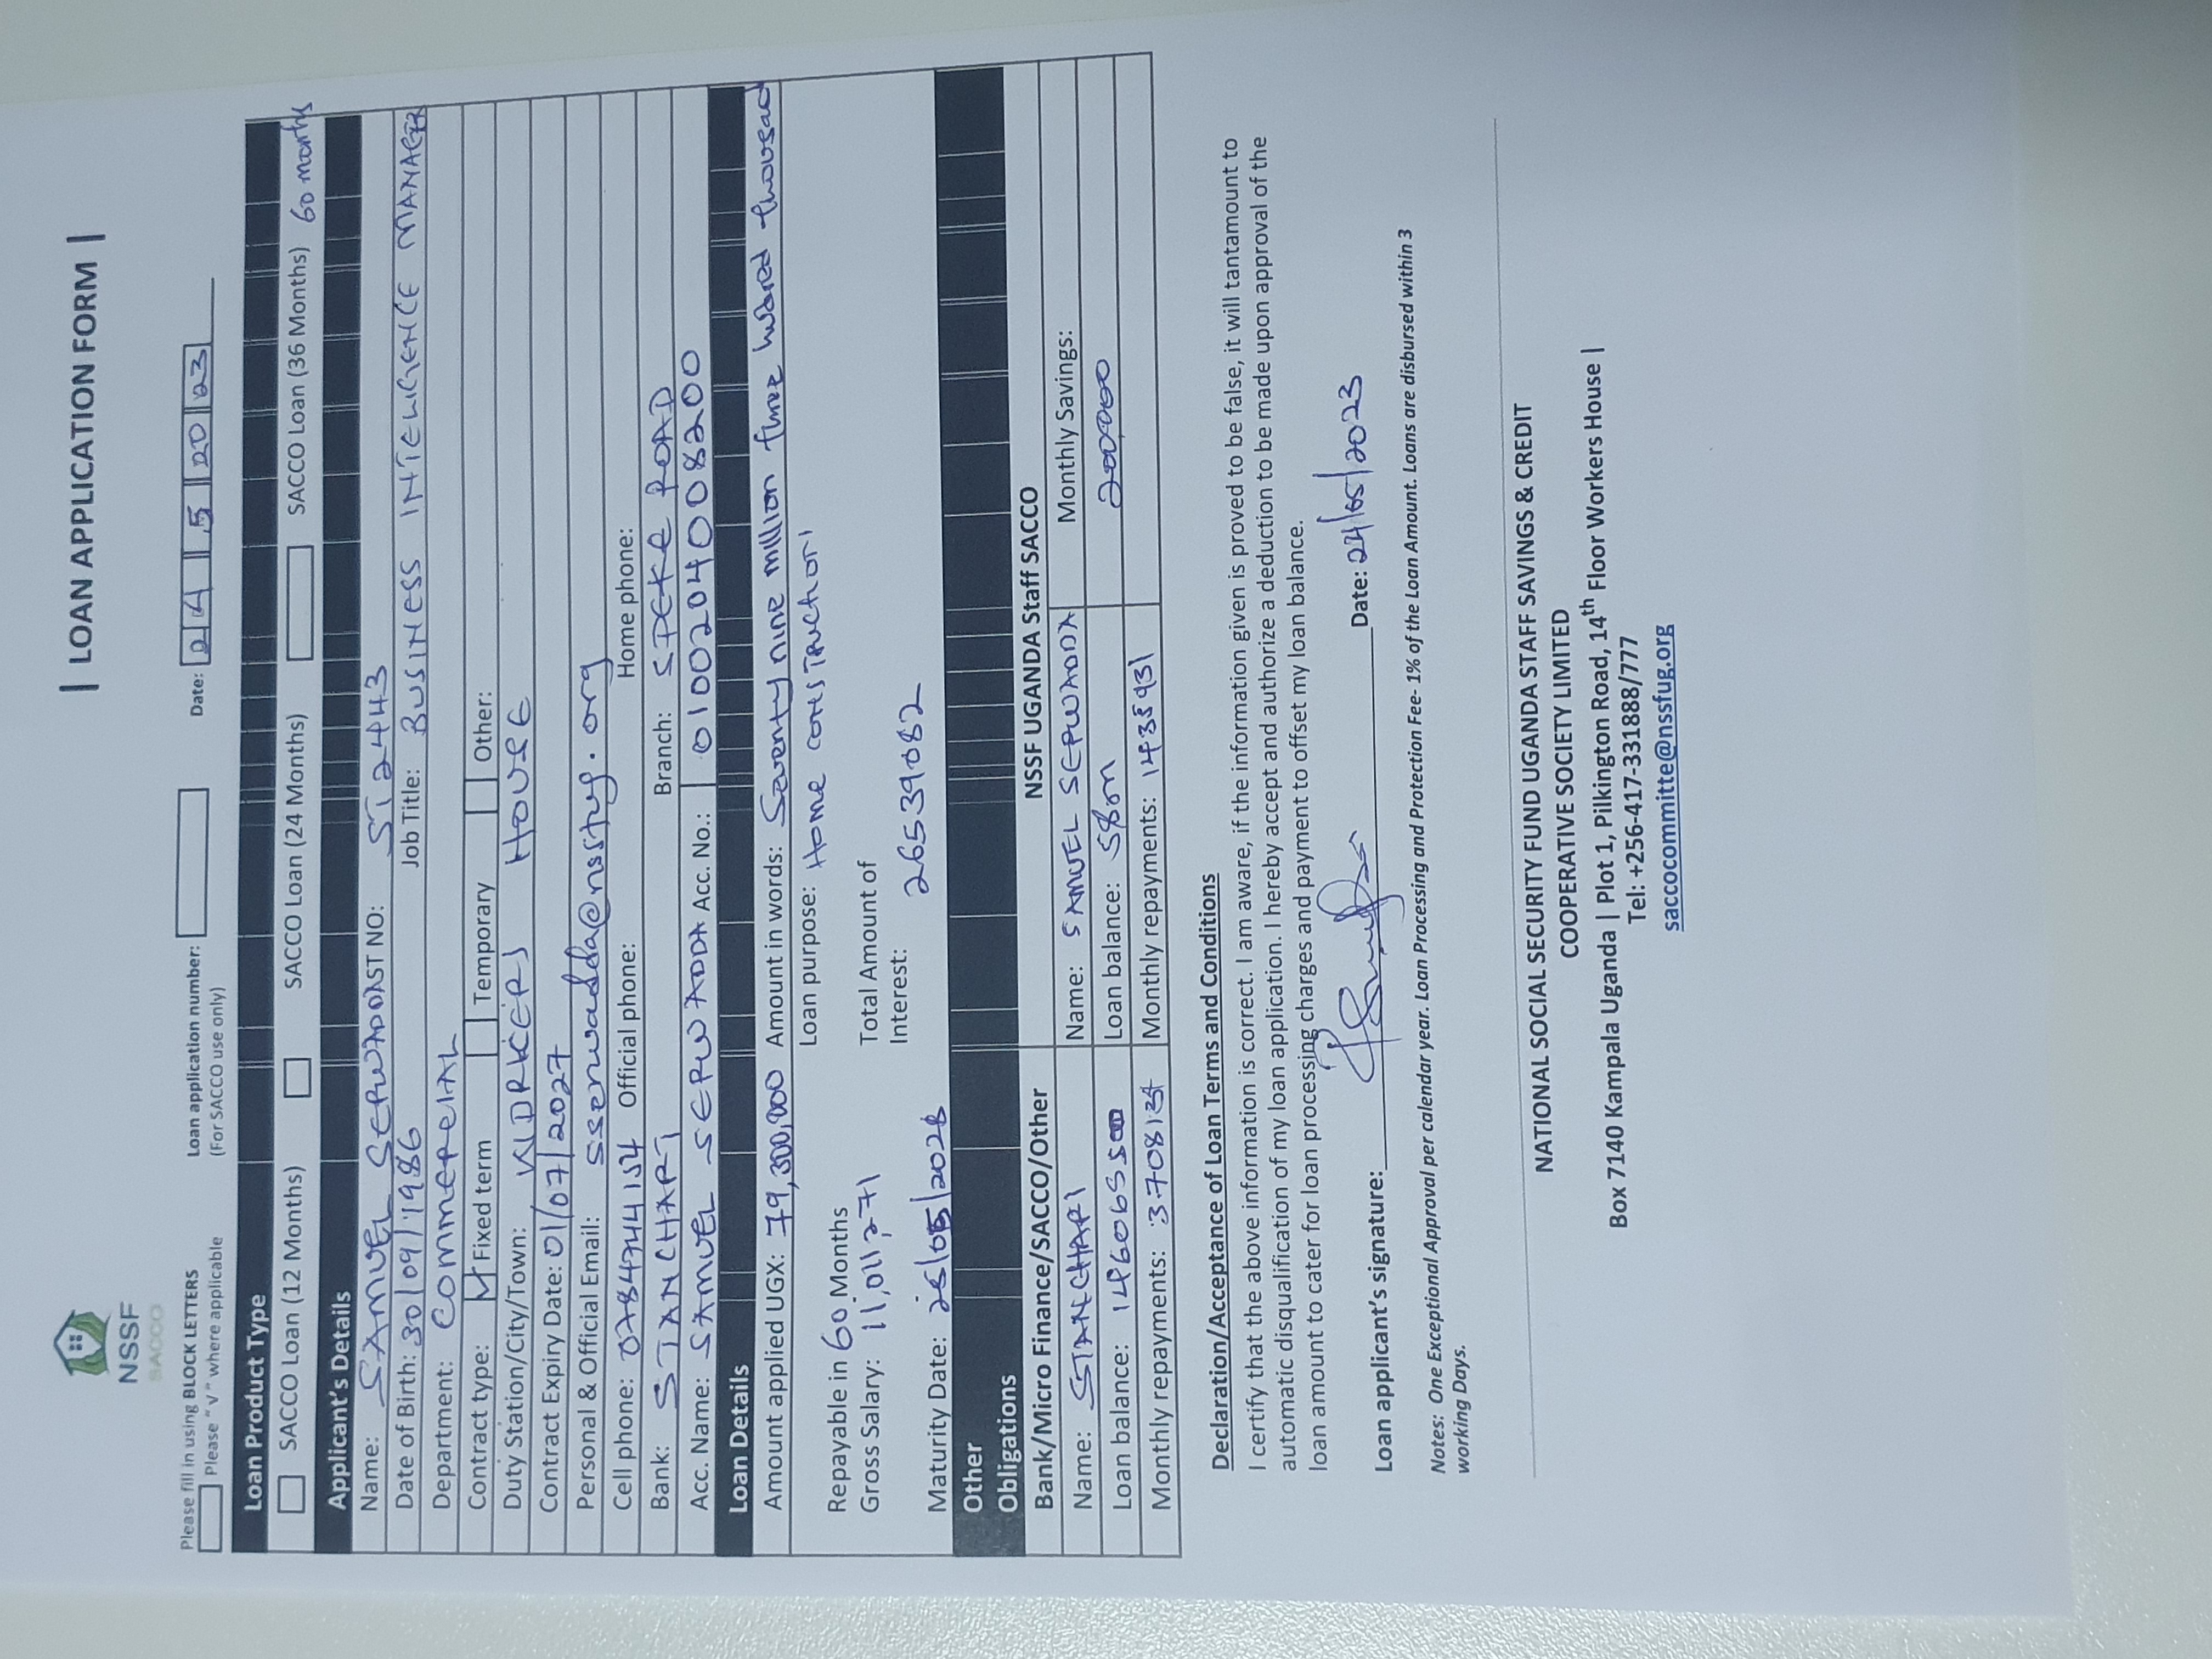 LOAN APPLICATION FORM
NSSF
SACCO
Please fill in using BLOCK LETTERS
Please "V" where applicable
Loan application number:
(For SACCO use only)
Date: 24 5 20 23
Loan Product Type
SACCO Loan (12 Months) SACCO Loan (24 Months) SACCO Loan (36 Months) 60 months
Applicant's Details
Name: SAMUEL SERWADDA ST NO: ST2443
Date of Birth: 30/09/1986 Job Title: BUSINESS INTELIGENCE MANAGER
Department: COMMERCIAL
Contract type: Fixed term Temporary Other:
Duty Station/City/Town: HOUSE
Contract Expiry Date: 01/07/2027
Personal & Official Email: sserwadda@nssfug.org
Cell phone: 0784744154 Official phone: Home phone:
Bank: STANCHART Branch: SPEKE ROAD
Acc. Name: SAMUEL SERWADDA Acc. No.: 0100204008200
Loan Details
Amount applied UGX: 79,300,000 Amount in words: Seventy nine million three hundred thousand
Loan purpose: Home construction
Repayable in 60 Months
Gross Salary: 11,011,271
Total Amount of
Interest: 26539082
Maturity Date: 25/05/2028
Other
Obligations
Bank/Micro Finance/SACCO/Other NSSF UGANDA Staff SACCO
Name: STANCHART Name: SAMUEL SERWADDA Monthly Savings:
Loan balance: Loan balance: 58m 200000
Monthly repayments: Monthly repayments: 1435931
Declaration/Acceptance of Loan Terms and Conditions
I certify that the above information is correct. I am aware, if the information given is proved to be false, it will tantamount to
automatic disqualification of my loan application. I hereby accept and authorize a deduction to be made upon approval of the
loan amount to cater for loan processing charges and payment to offset my loan balance.
Loan applicant's signature: Date: 24/05/2023
Notes: One Exceptional Approval per calendar year. Loan Processing and Protection Fee- 1% of the Loan Amount. Loans are disbursed within 3
working Days.
NATIONAL SOCIAL SECURITY FUND UGANDA STAFF SAVINGS & CREDIT
COOPERATIVE SOCIETY LIMITED
Box 7140 Kampala Uganda | Plot 1, Pilkington Road, 14th Floor Workers House |
Tel: +256-417-331888/777
saccocommitte@nssfug.org